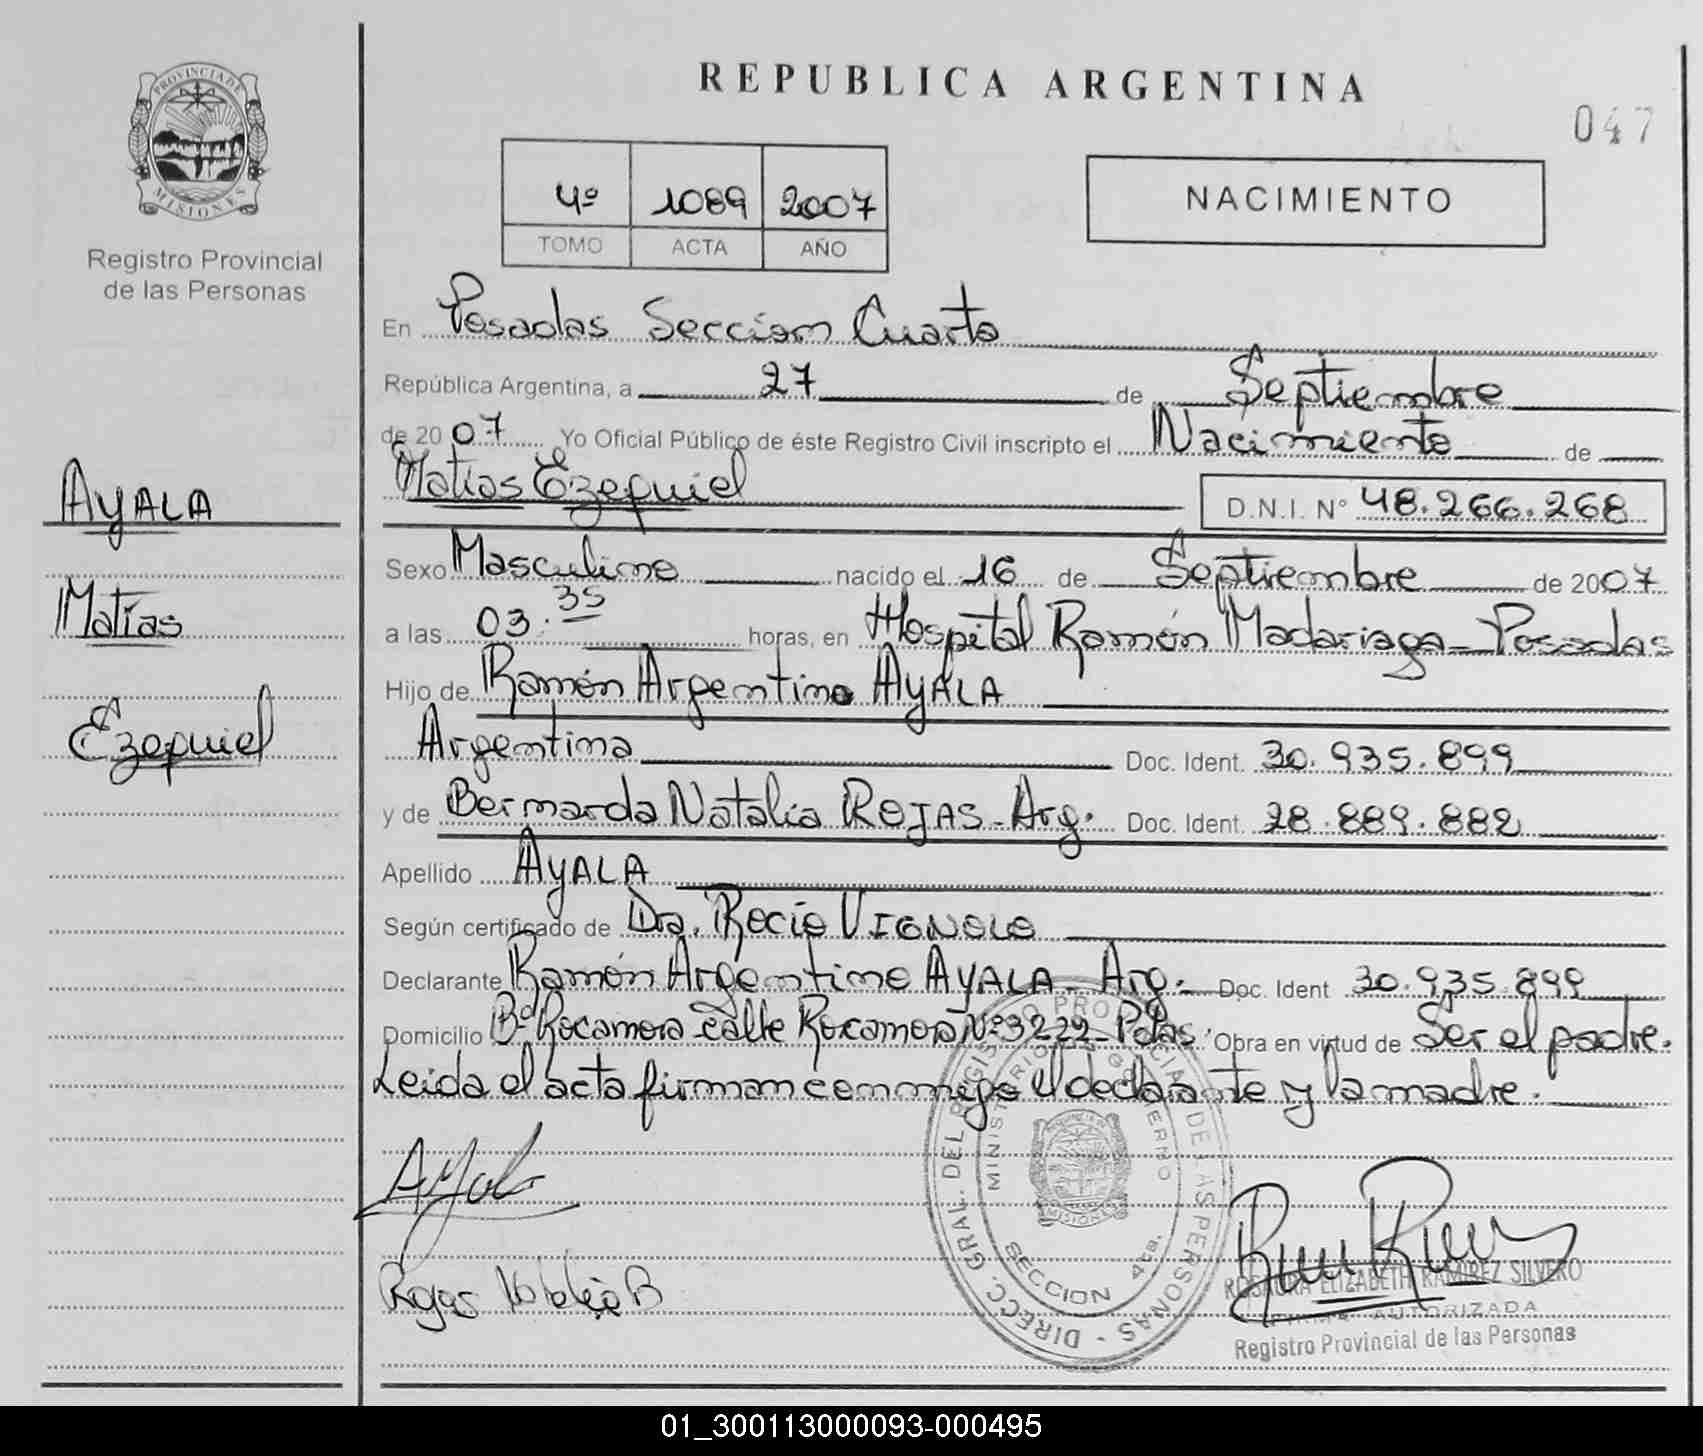 REPUBLICA ARGENTINA
047
PROVINCIA DE
MISIONES
Registro Provincial
de las Personas
4º 1089 2007
TOMO ACTA AÑO
NACIMIENTO
En Posadas Sección Cuarta
República Argentina, a 27 de Septiembre
de 2007 Yo Oficial Público de éste Registro Civil inscripto el Nacimiento de
Matías Ezequiel D.N.I. Nº 48.266.268
AYALA
Matías
Ezequiel
Sexo Masculino nacido el 16 de Septiembre de 2007
a las 03:35 horas, en Hospital Ramón Madariaga - Posadas
Hijo de Ramón Argentino AYALA
Argentina Doc. Ident. 30.935.899
y de Bernarda Natalia ROJAS - Arg. Doc. Ident. 28.889.882
Apellido AYALA
Según certificado de Dra. Rocío VIGNOLO
Declarante Ramón Argentino AYALA - Arg. - Doc. Ident 30.935.899
Domicilio Bº Rocamora calle Rocamora Nº 3222 - Pdas. Obra en virtud de Ser el padre.
Leida el acta firman conmigo el declarante y la madre.
Ayala
Rojas Natalia B
DIRECC. GRAL. DEL REGISTRO PROVINCIAL DE LAS PERSONAS -
MINISTERIO GOBIERNO
MISIONES
SECCION 4ta.
ROSAURA ELIZABETH RAMIREZ SILVERO
FIRMA AUTORIZADA
Registro Provincial de las Personas
01_300113000093-000495